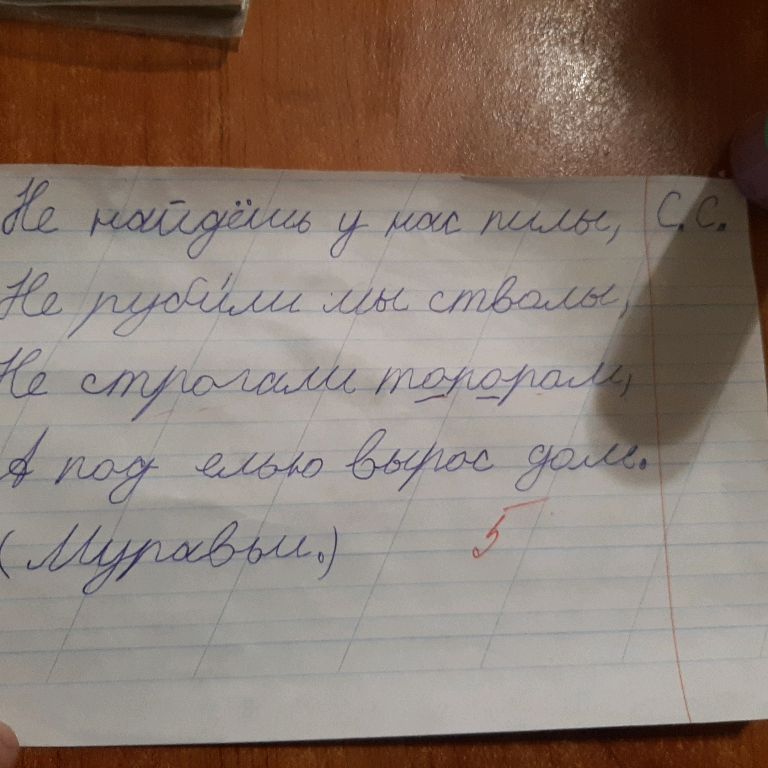 Не найдёшь у нас пилы, С.С.
Не руби́ли мы стволы,
Не строгали топором,
А под елью вырос дом.
(Муравьи.)
5